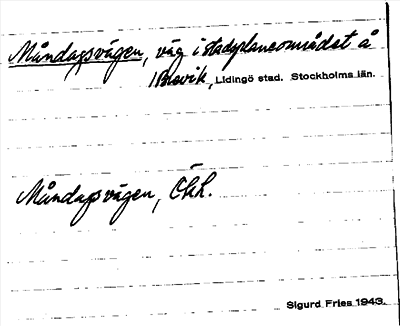 Måndagsvägen, väg i stadsplaneområdet å
Brevik, Lidingö stad. Stockholms län.
Måndagsvägen, Ökh.
Sigurd Fries 1943.